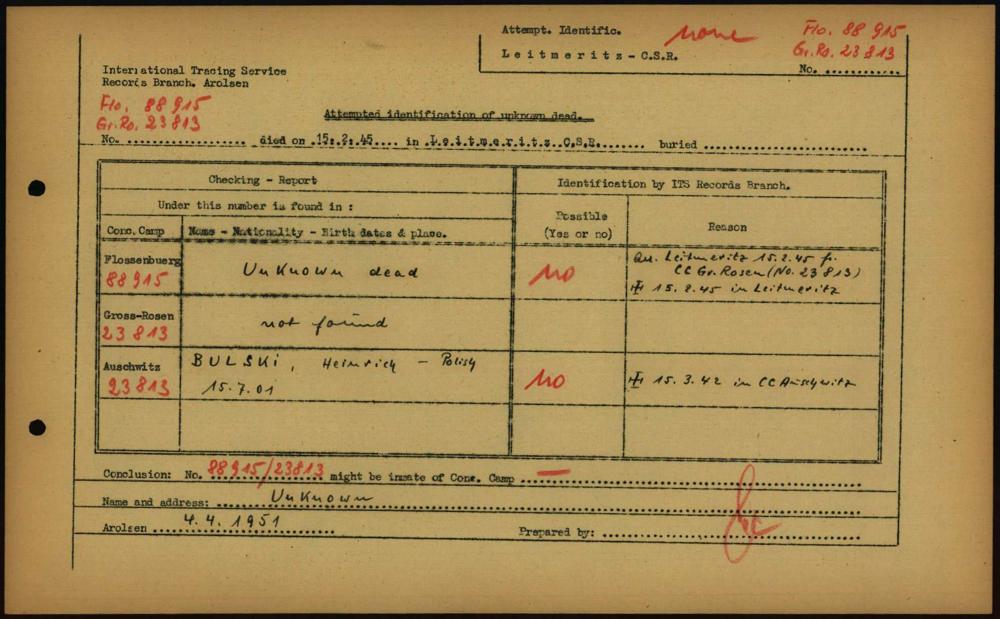 Attempt. Identific. none
Flo. 88 915
Leitmeritz - C.S.R.
Gr. Ro. 23 813
No. ............
International Tracing Service
Records Branch. Arolsen
Flo. 88 915
Gr. Ro. 23 813
Attempted identification of unknown dead.
No. ...... died on .15.2.45.... in .L.e.i.t.m.e.r.i.t.z..C.S.R....... buried ..........................
Checking - Report
Identification by ITS Records Branch.
Under this number is found in :
Possible
(Yes or no)
Reason
Conc. Camp
Name - Nationality - Birth dates & place.
Flossenbuerg
88 915
Unknown dead
no
Leitmeritz 15.2.45 fr.
CC Gr. Rosen (No. 23 813)
15.2.45 in Leitmeritz
Gross-Rosen
23 813
not found
Auschwitz
23 813
BULSKI, Heinrich - Polish
15.7.01
no
15.3.42 in CC Auschwitz
Conclusion: No. 88 915/23813 might be inmate of Conc. Camp —
Name and address: Unknown
Arolsen 4.4.1951
Prepared by: ..........................